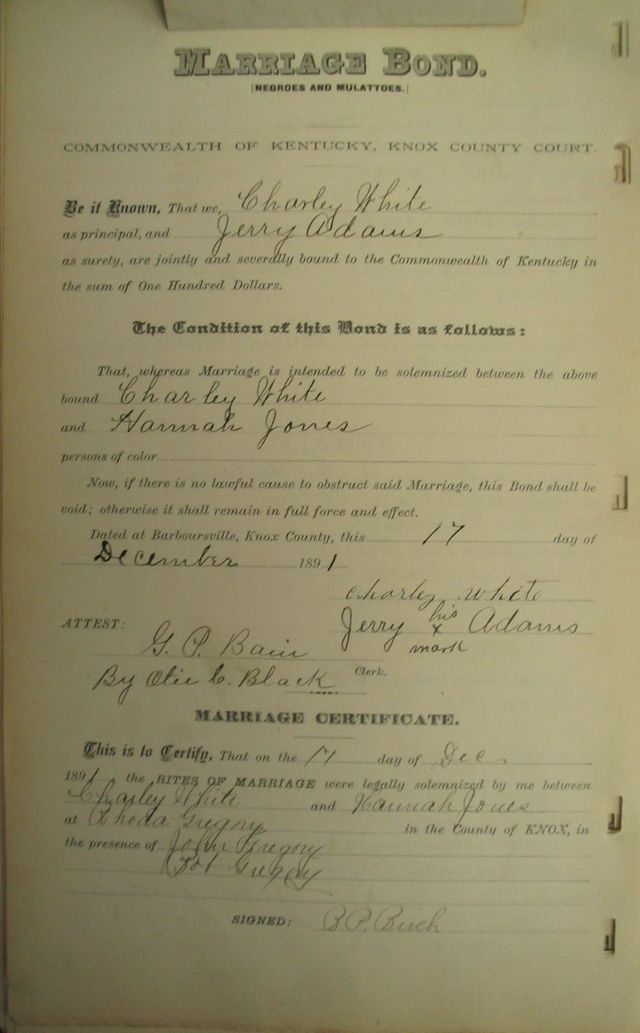 MARRIAGE BOND.
[NEGROES AND MULATTOES.]
COMMONWEALTH OF KENTUCKY, KNOX COUNTY COURT.
Be it Known, That we, Charley White
as principal, and Jerry Adams
as surety, are jointly and severally bound to the Commonwealth of Kentucky in
the sum of One Hundred Dollars.
The Condition of this Bond is as follows:
That, whereas Marriage is intended to be solemnized between the above
bound Charley White
and Hannah Jones
persons of color
Now, if there is no lawful cause to obstruct said Marriage, this Bond shall be
void; otherwise it shall remain in full force and effect.
Dated at Barboursville, Knox County, this 17 day of
December 1891
Charley White
Jerry his x mark Adams
ATTEST:
G. P. Bain
By Olie C. Black Clerk.
MARRIAGE CERTIFICATE.
This is to Certify, That on the 17 day of Dec.
1891 the RITES OF MARRIAGE were legally solemnized by me between
Charley White and Hannah Jones
at Rhoda Gregory in the County of KNOX, in
the presence of John Gregory
Gregory
SIGNED: B. P.